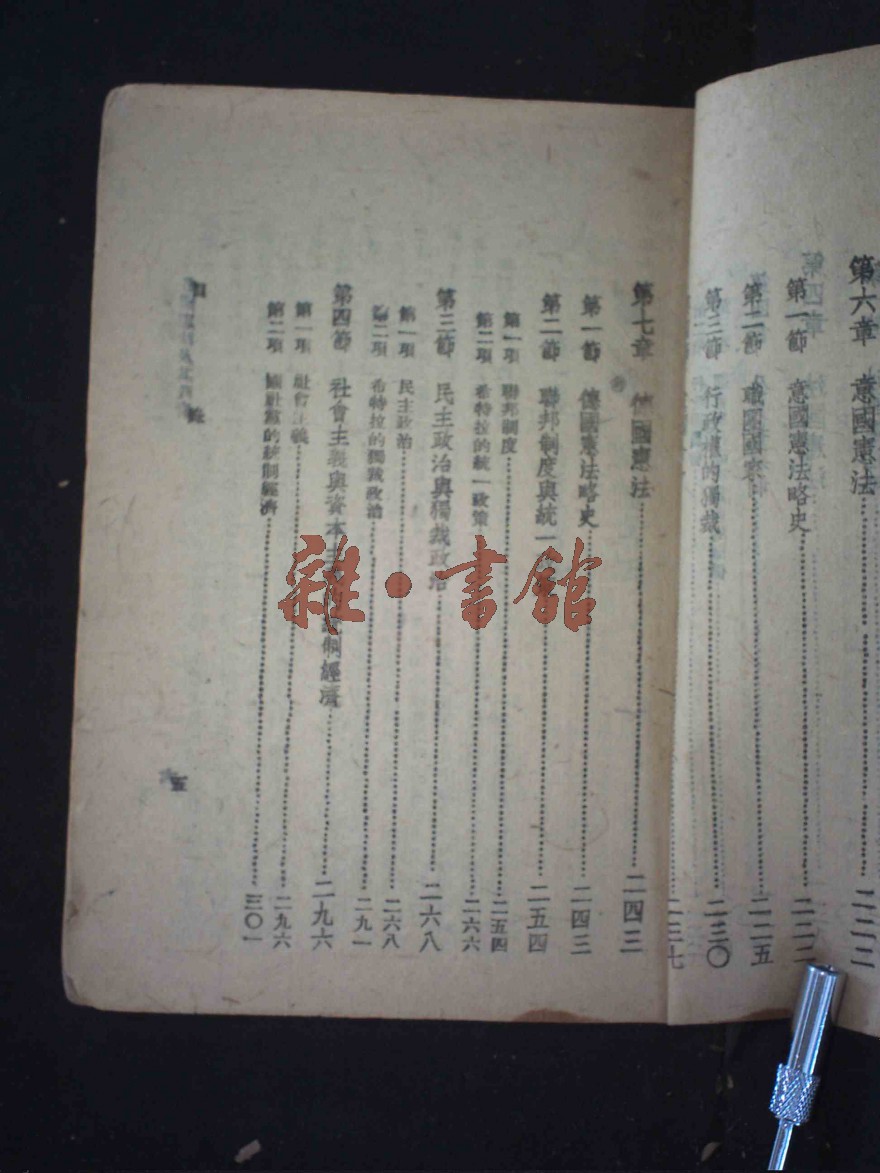 第六章　意國憲法……二二二
第一節　意國憲法略史……二二二
第二節　職團國家……二二五
第三節　行政權的獨裁……二三〇
……二三七
第七章　德國憲法……二四三
第一節　德國憲法略史……二四三
第二節　聯邦制度與統一……二五四
第一項　聯邦制度……二五四
第二項　希特拉的統一政策……二六六
第三節　民主政治與獨裁政治……二六八
第一項　民主政治……二六八
第二項　希特拉的獨裁政治……二九一
第四節　社會主義與資本主……制經濟……二九六
第一項　社會主義……二九六
第二項　國社黨的統制經濟……三〇一
目錄
五
雜·書館